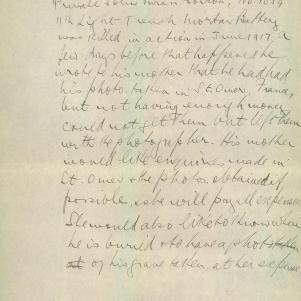 Private John Logan London, No. 1039
11th Light Trench Mortar Battery
was killed in action in June 1917. A
few days before that happened he
wrote to his mother that he had had
his photo taken in St. Omer, France,
but not having enough money
could not get them but left them
with the photographer. His mother
would like enquiries made in
St. Omer & the photos obtained if
possible, & she will pay all expenses
She would also like to know where
he is buried & to have a photo taken
at of his grave taken, at her expense